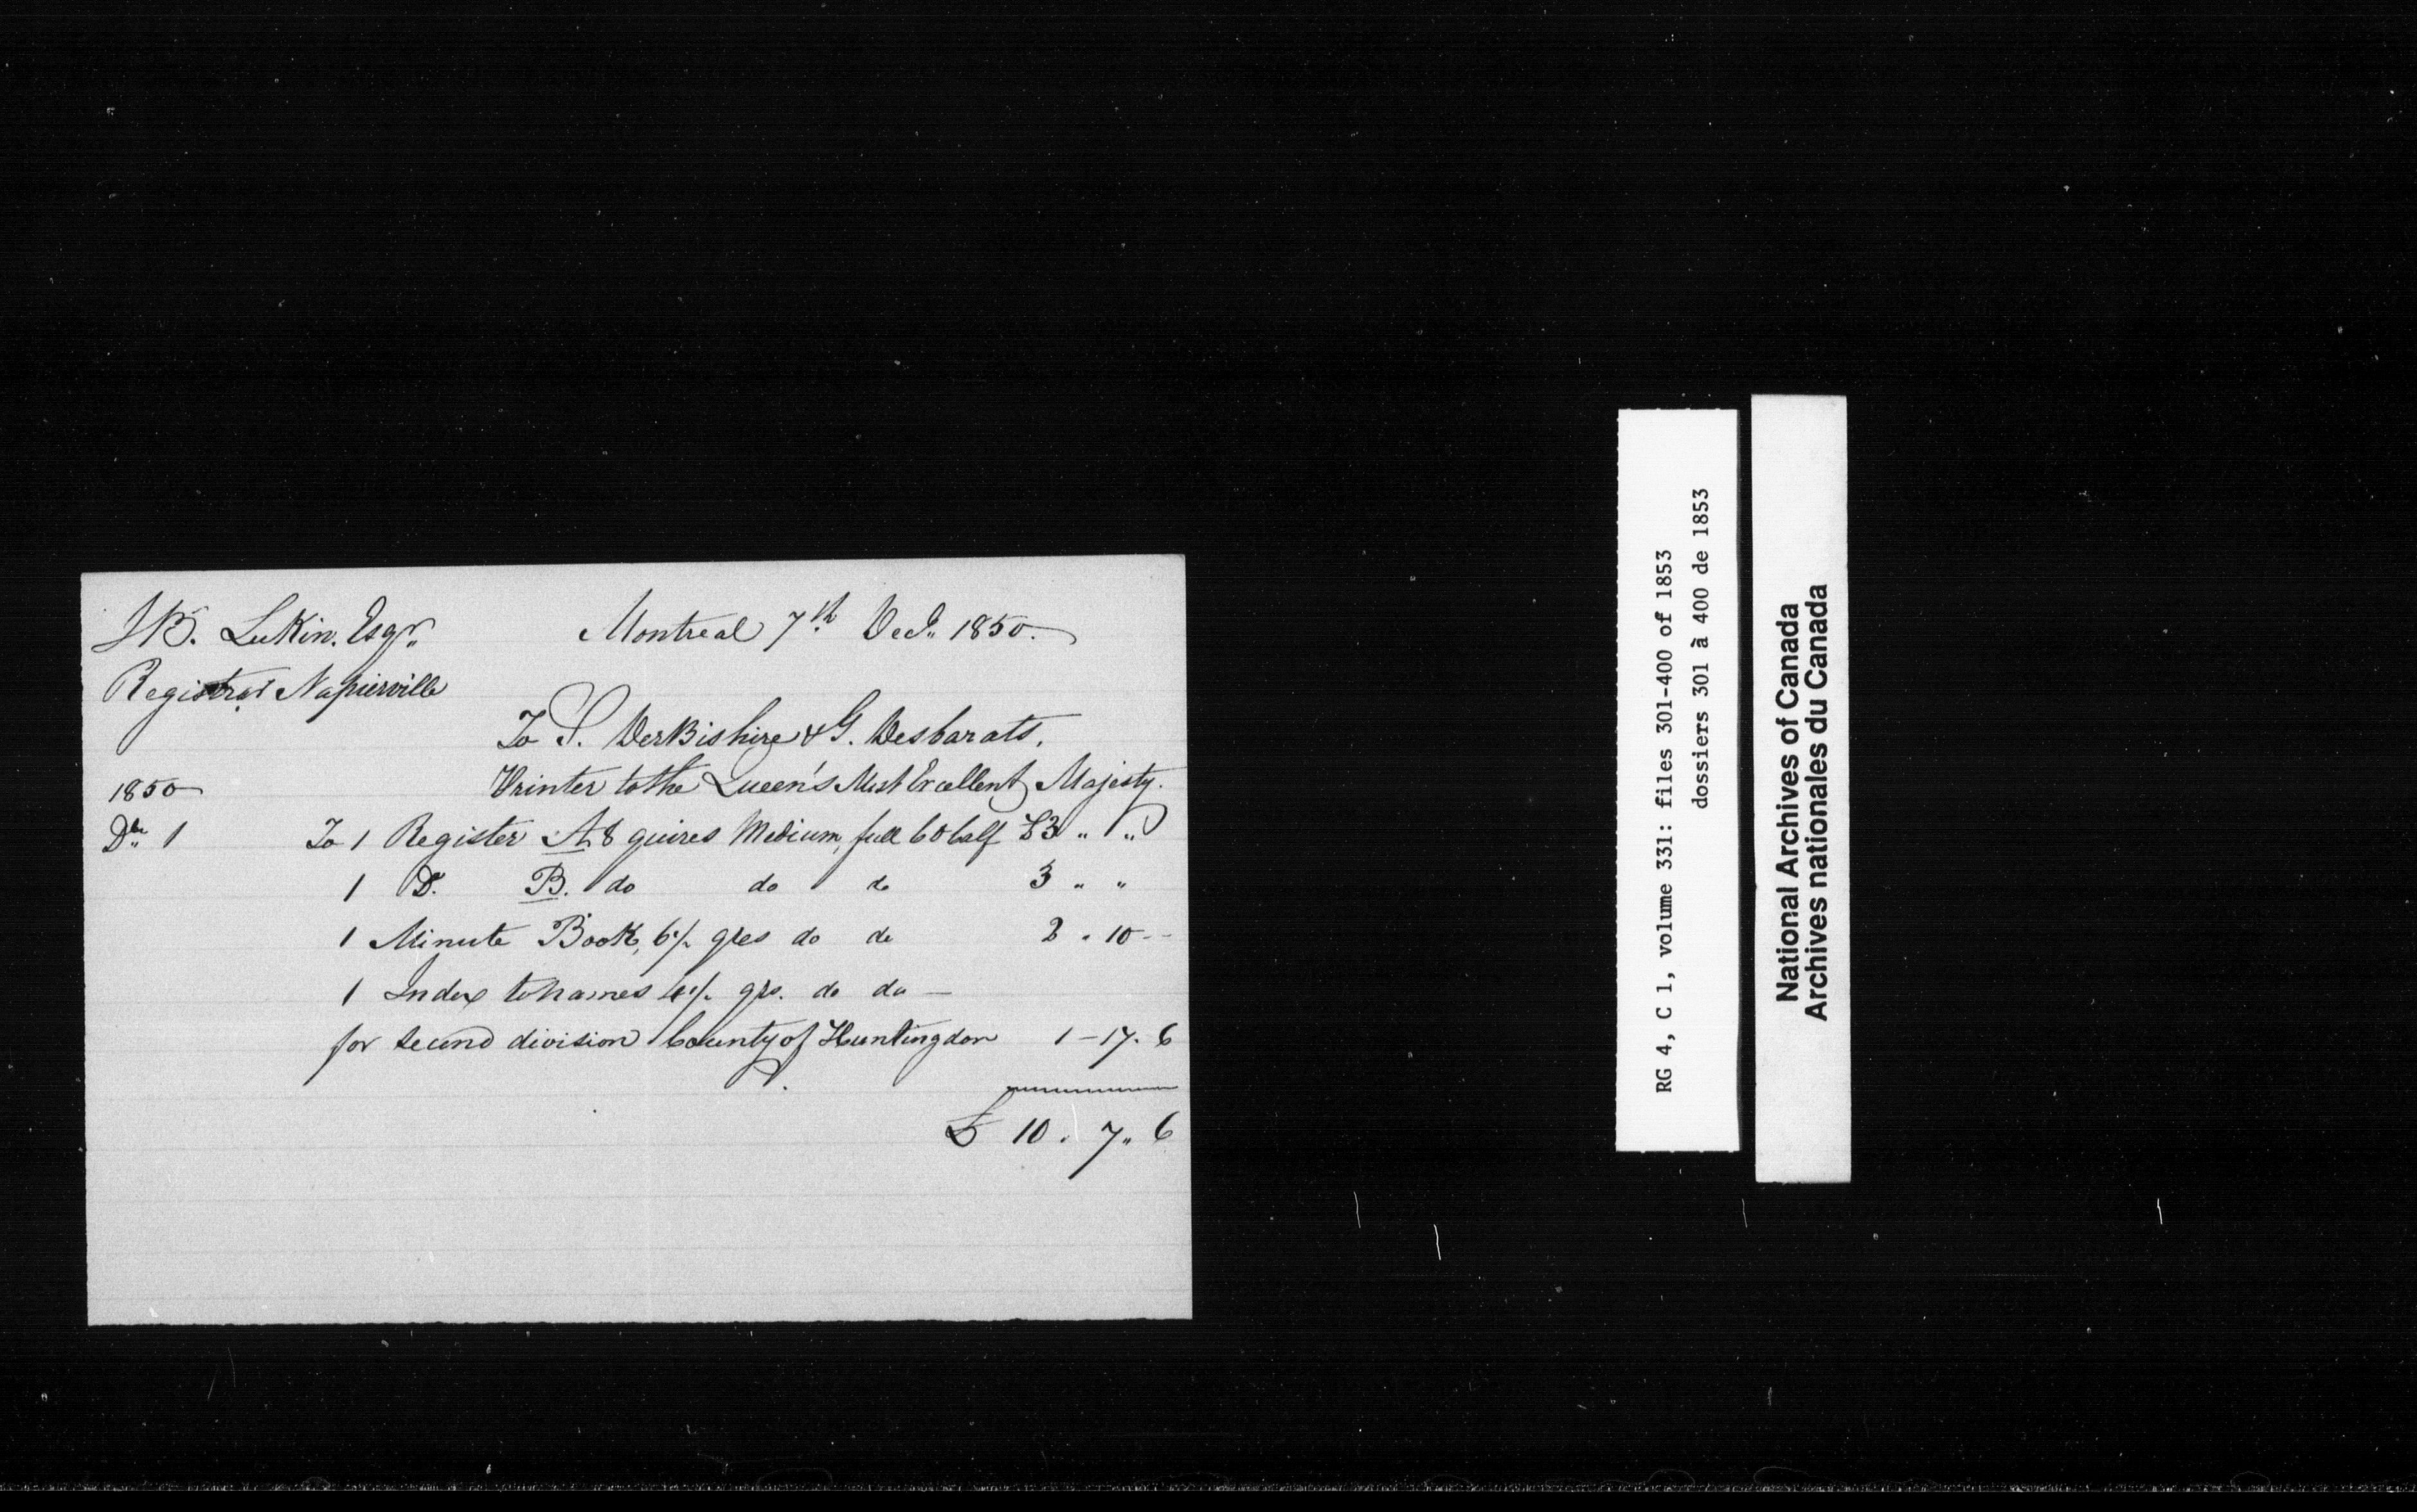 JB. Lukin. Esqr.
Montreal 7th Dec. 1850.
Registrar Napierville
To S. DerBishire & G. Desbarats,
1850
Printer to the Queen's Most Excellent Majesty.
Dbr 1 To 1 Register A 8 quires Medium, full bd Calf £3 " "
1 D. B. do do do 3 " "
1 Minute Book, 6 1/2 qres do do 2 " 10 -
1 Index to names qrs. do do —
for second division County of Huntingdon 1 - 17. 6
£ 10. 7 " 6
RG 4, C 1, volume 331: files 301-400 of 1853
dossiers 301 à 400 de 1853
National Archives of Canada
Archives nationales du Canada